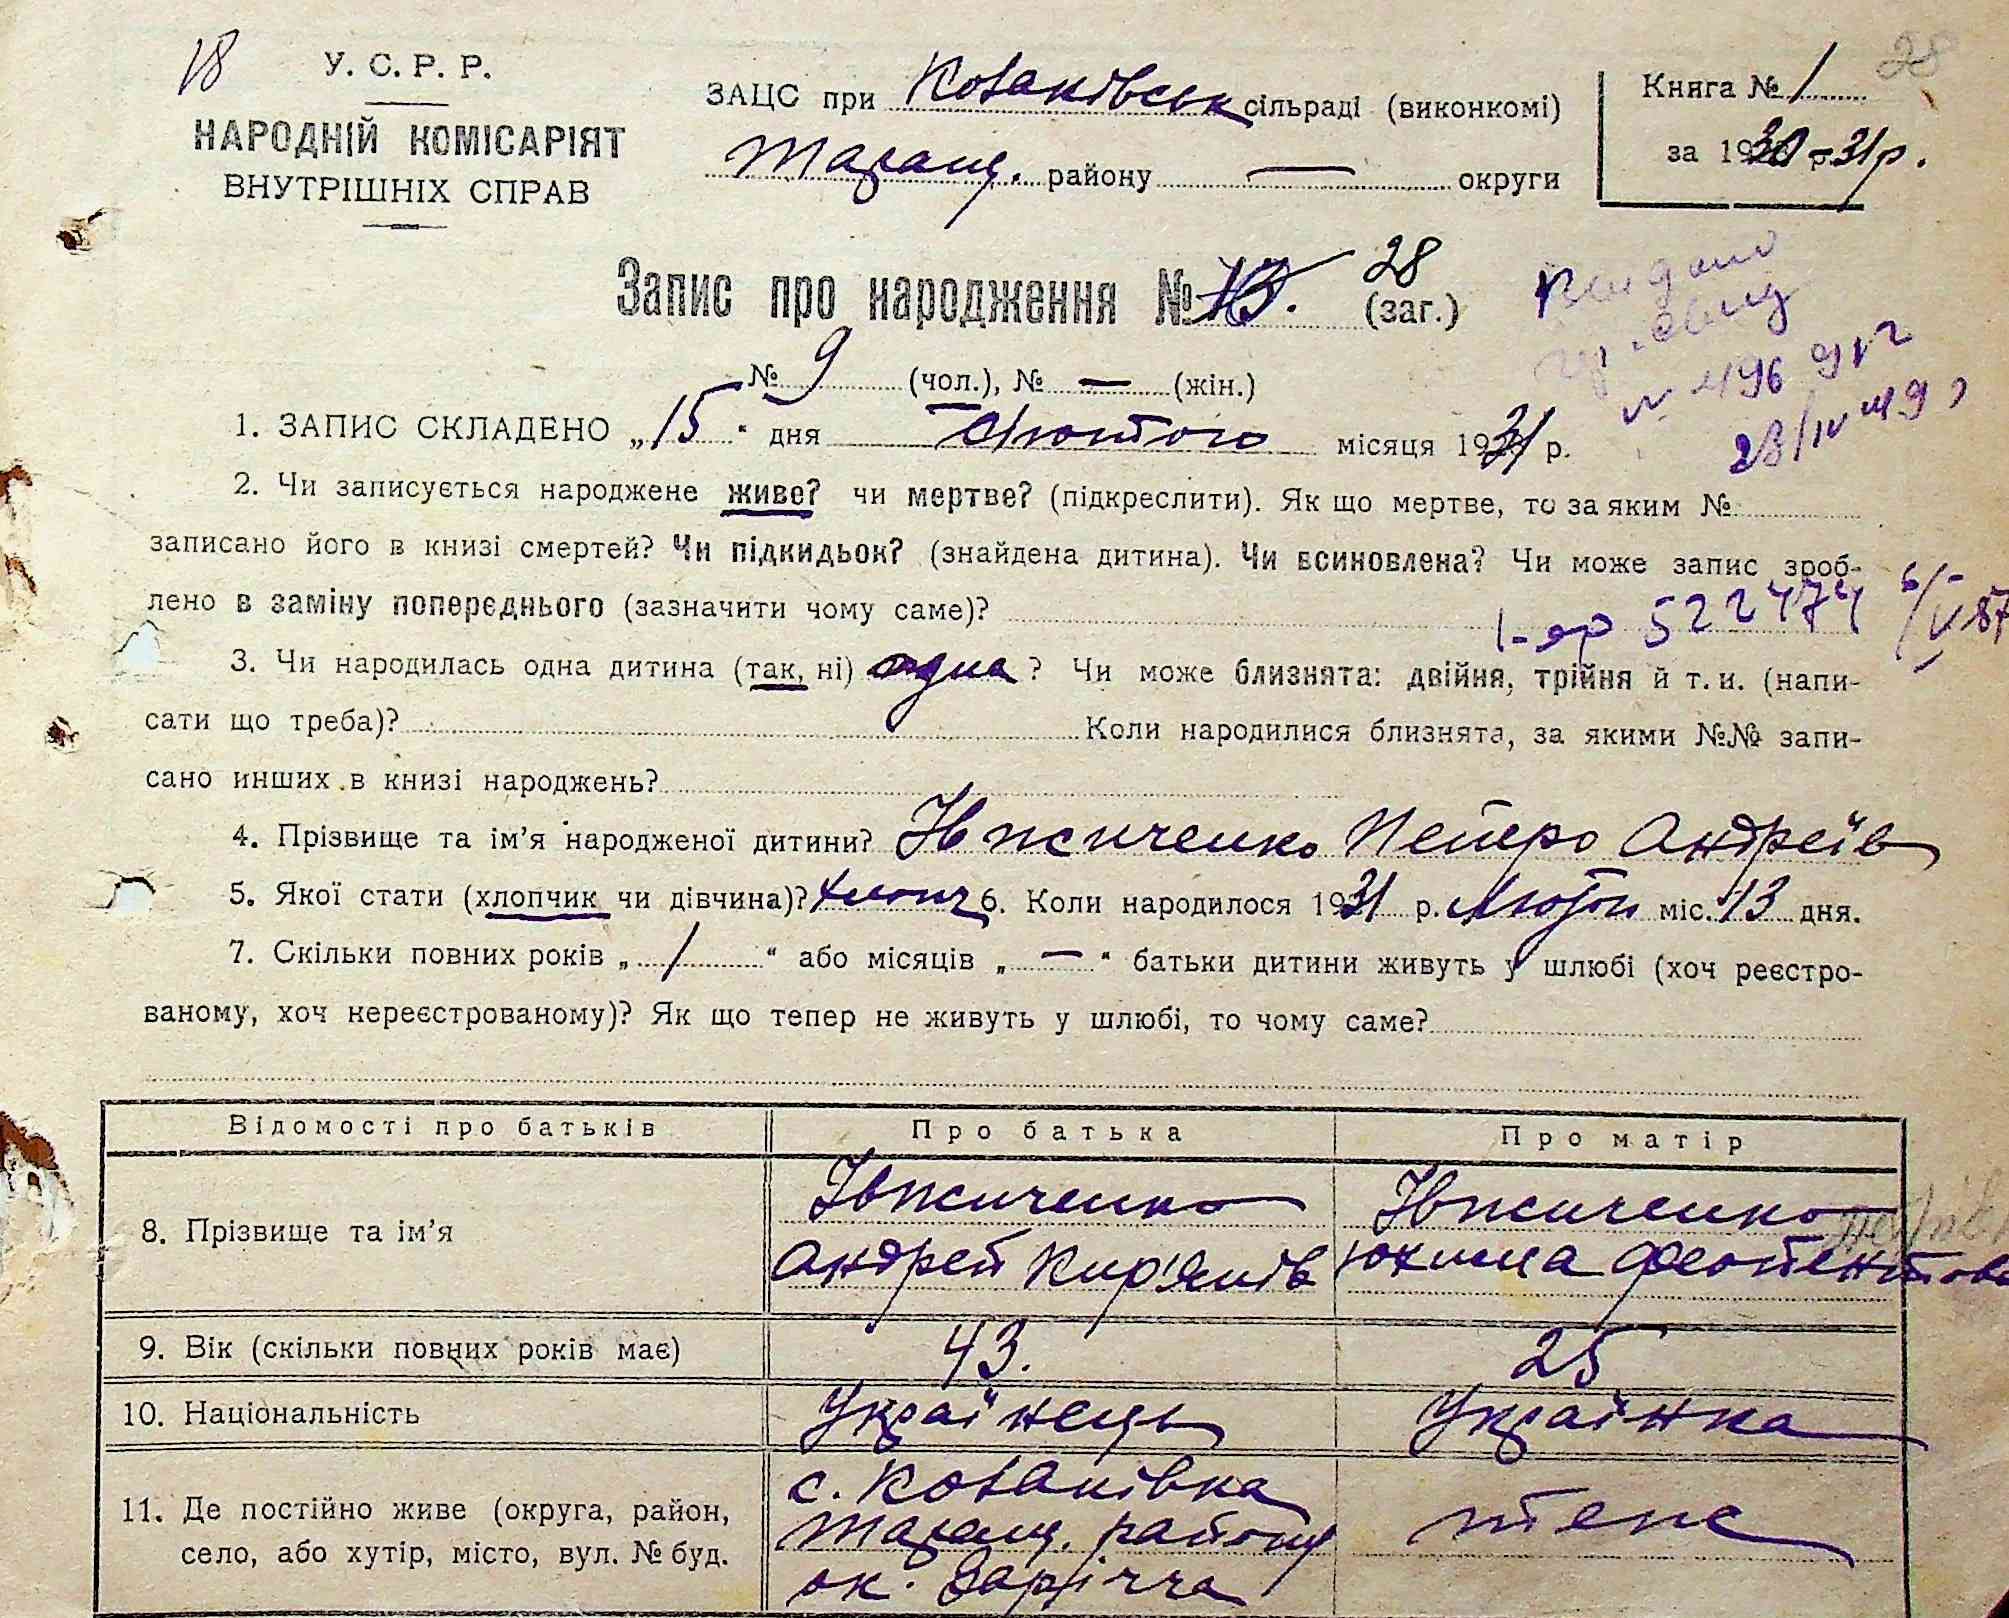 18
У. С. Р. Р.
НАРОДНІЙ КОМІСАРІЯТ
ВНУТРІШНІХ СПРАВ
ЗАЦС при Козаківськ сільраді (виконкомі)
Таращ. району — округи
Книга № 1
28
за 1930-31 р.
Запис про народження № 28 (заг.)
№ 9 (чол.), № — (жін.)
Видано
№ 496
1. ЗАПИС СКЛАДЕНО „15“ дня Лютого місяця 1931 р.
2. Чи записується народжене живе? чи мертве? (підкреслити). Як що мертве, то за яким №
записано його в книзі смертей? Чи підкидьок? (знайдена дитина). Чи всиновлена? Чи може запис зроб-
лено в заміну попереднього (зазначити чому саме)?
522474
3. Чи народилась одна дитина (так, ні) одна? Чи може близнята: двійня, трійня й т. и. (напи-
сати що треба)? Коли народилися близнята, за якими №№ запи-
сано инших в книзі народжень?
4. Прізвище та ім'я народженої дитини? Івжиченко Петро Андреїв
5. Якої стати (хлопчик чи дівчина)? хлопч 6. Коли народилося 1931 р. Лютого міс. 13 дня.
7. Скільки повних років „ 1 “ або місяців „ — “ батьки дитини живуть у шлюбі (хоч реєстро-
ваному, хоч нереєстрованому)? Як що тепер не живуть у шлюбі, то чому саме?
Відомості про батьків
Про батька
Про матір
8. Прізвище та ім'я
Івжиченко
Андрей Кир'янів
Івжиченко
Юхима Феопентова
9. Вік (скільки повних років має)
43.
25
10. Національність
Українець
Українка
11. Де постійно живе (округа, район,
село, або хутір, місто, вул. № буд.
с. Козаківка
Таращ. району
ок. Заріччя
теж